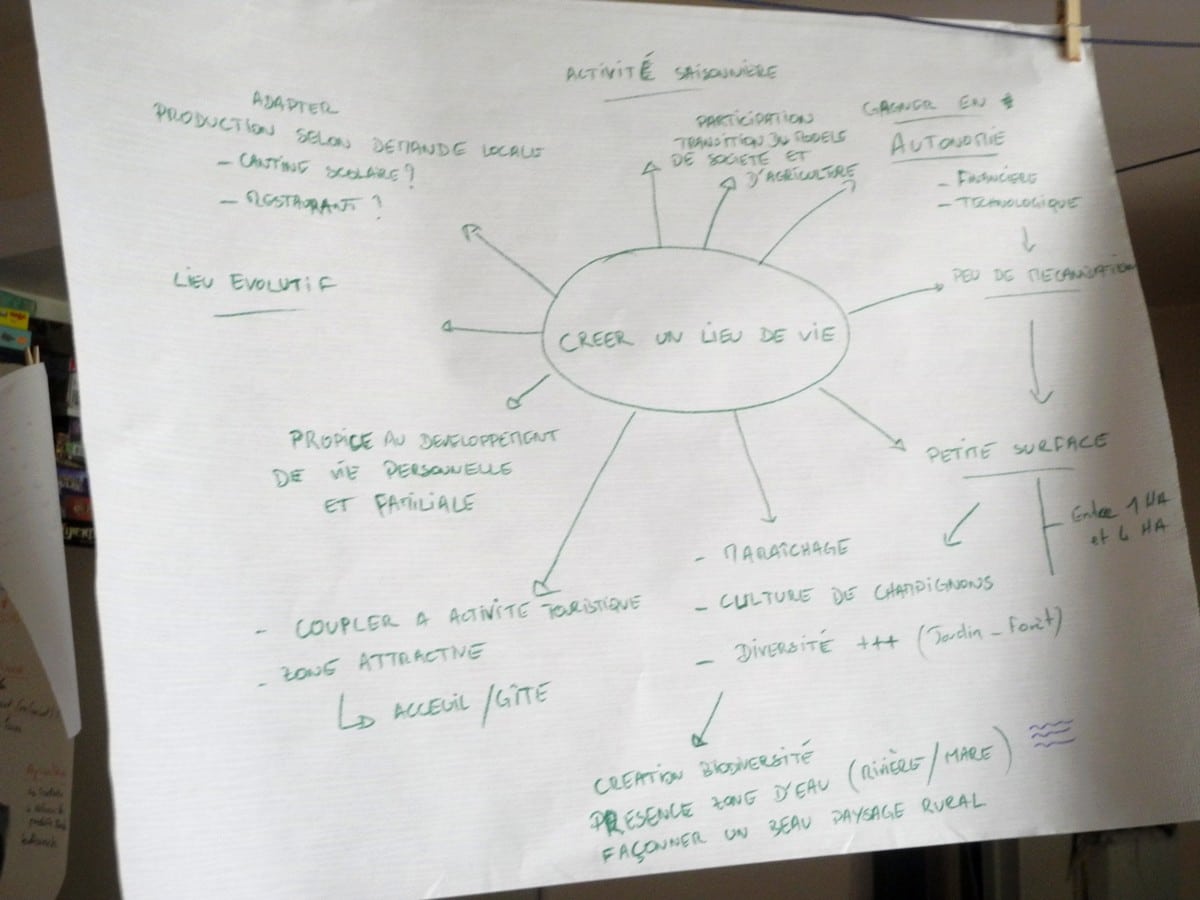 ACTIVITÉ SAISONNIÈRE
ADAPTER
PRODUCTION SELON DEMANDE LOCALE
- CANTINE SCOLAIRE ?
- RESTAURANT ?
PARTICIPATION
TRANSITION DU MODELE
DE SOCIETE ET
D'AGRICULTURE
GAGNER EN
AUTONOMIE
- FINANCIÈRE
- TECHNOLOGIQUE
PEU DE MECANISATION
LIEU EVOLUTIF
CREER UN LIEU DE VIE
PROPICE AU DEVELOPPEMENT
DE VIE PERSONNELLE
ET FAMILIALE
PETITE SURFACE
Entre 1 HA
et 4 HA
- MARAÎCHAGE
- CULTURE DE CHAMPIGNONS
- DIVERSITÉ +++ (Jardin-Forêt)
- COUPLER A ACTIVITE TOURISTIQUE
- ZONE ATTRACTIVE
ACCEUIL/GÎTE
CREATION BIODIVERSITÉ
PRESENCE ZONE D'EAU (RIVIÈRE/MARE)
FAÇONNER UN BEAU PAYSAGE RURAL